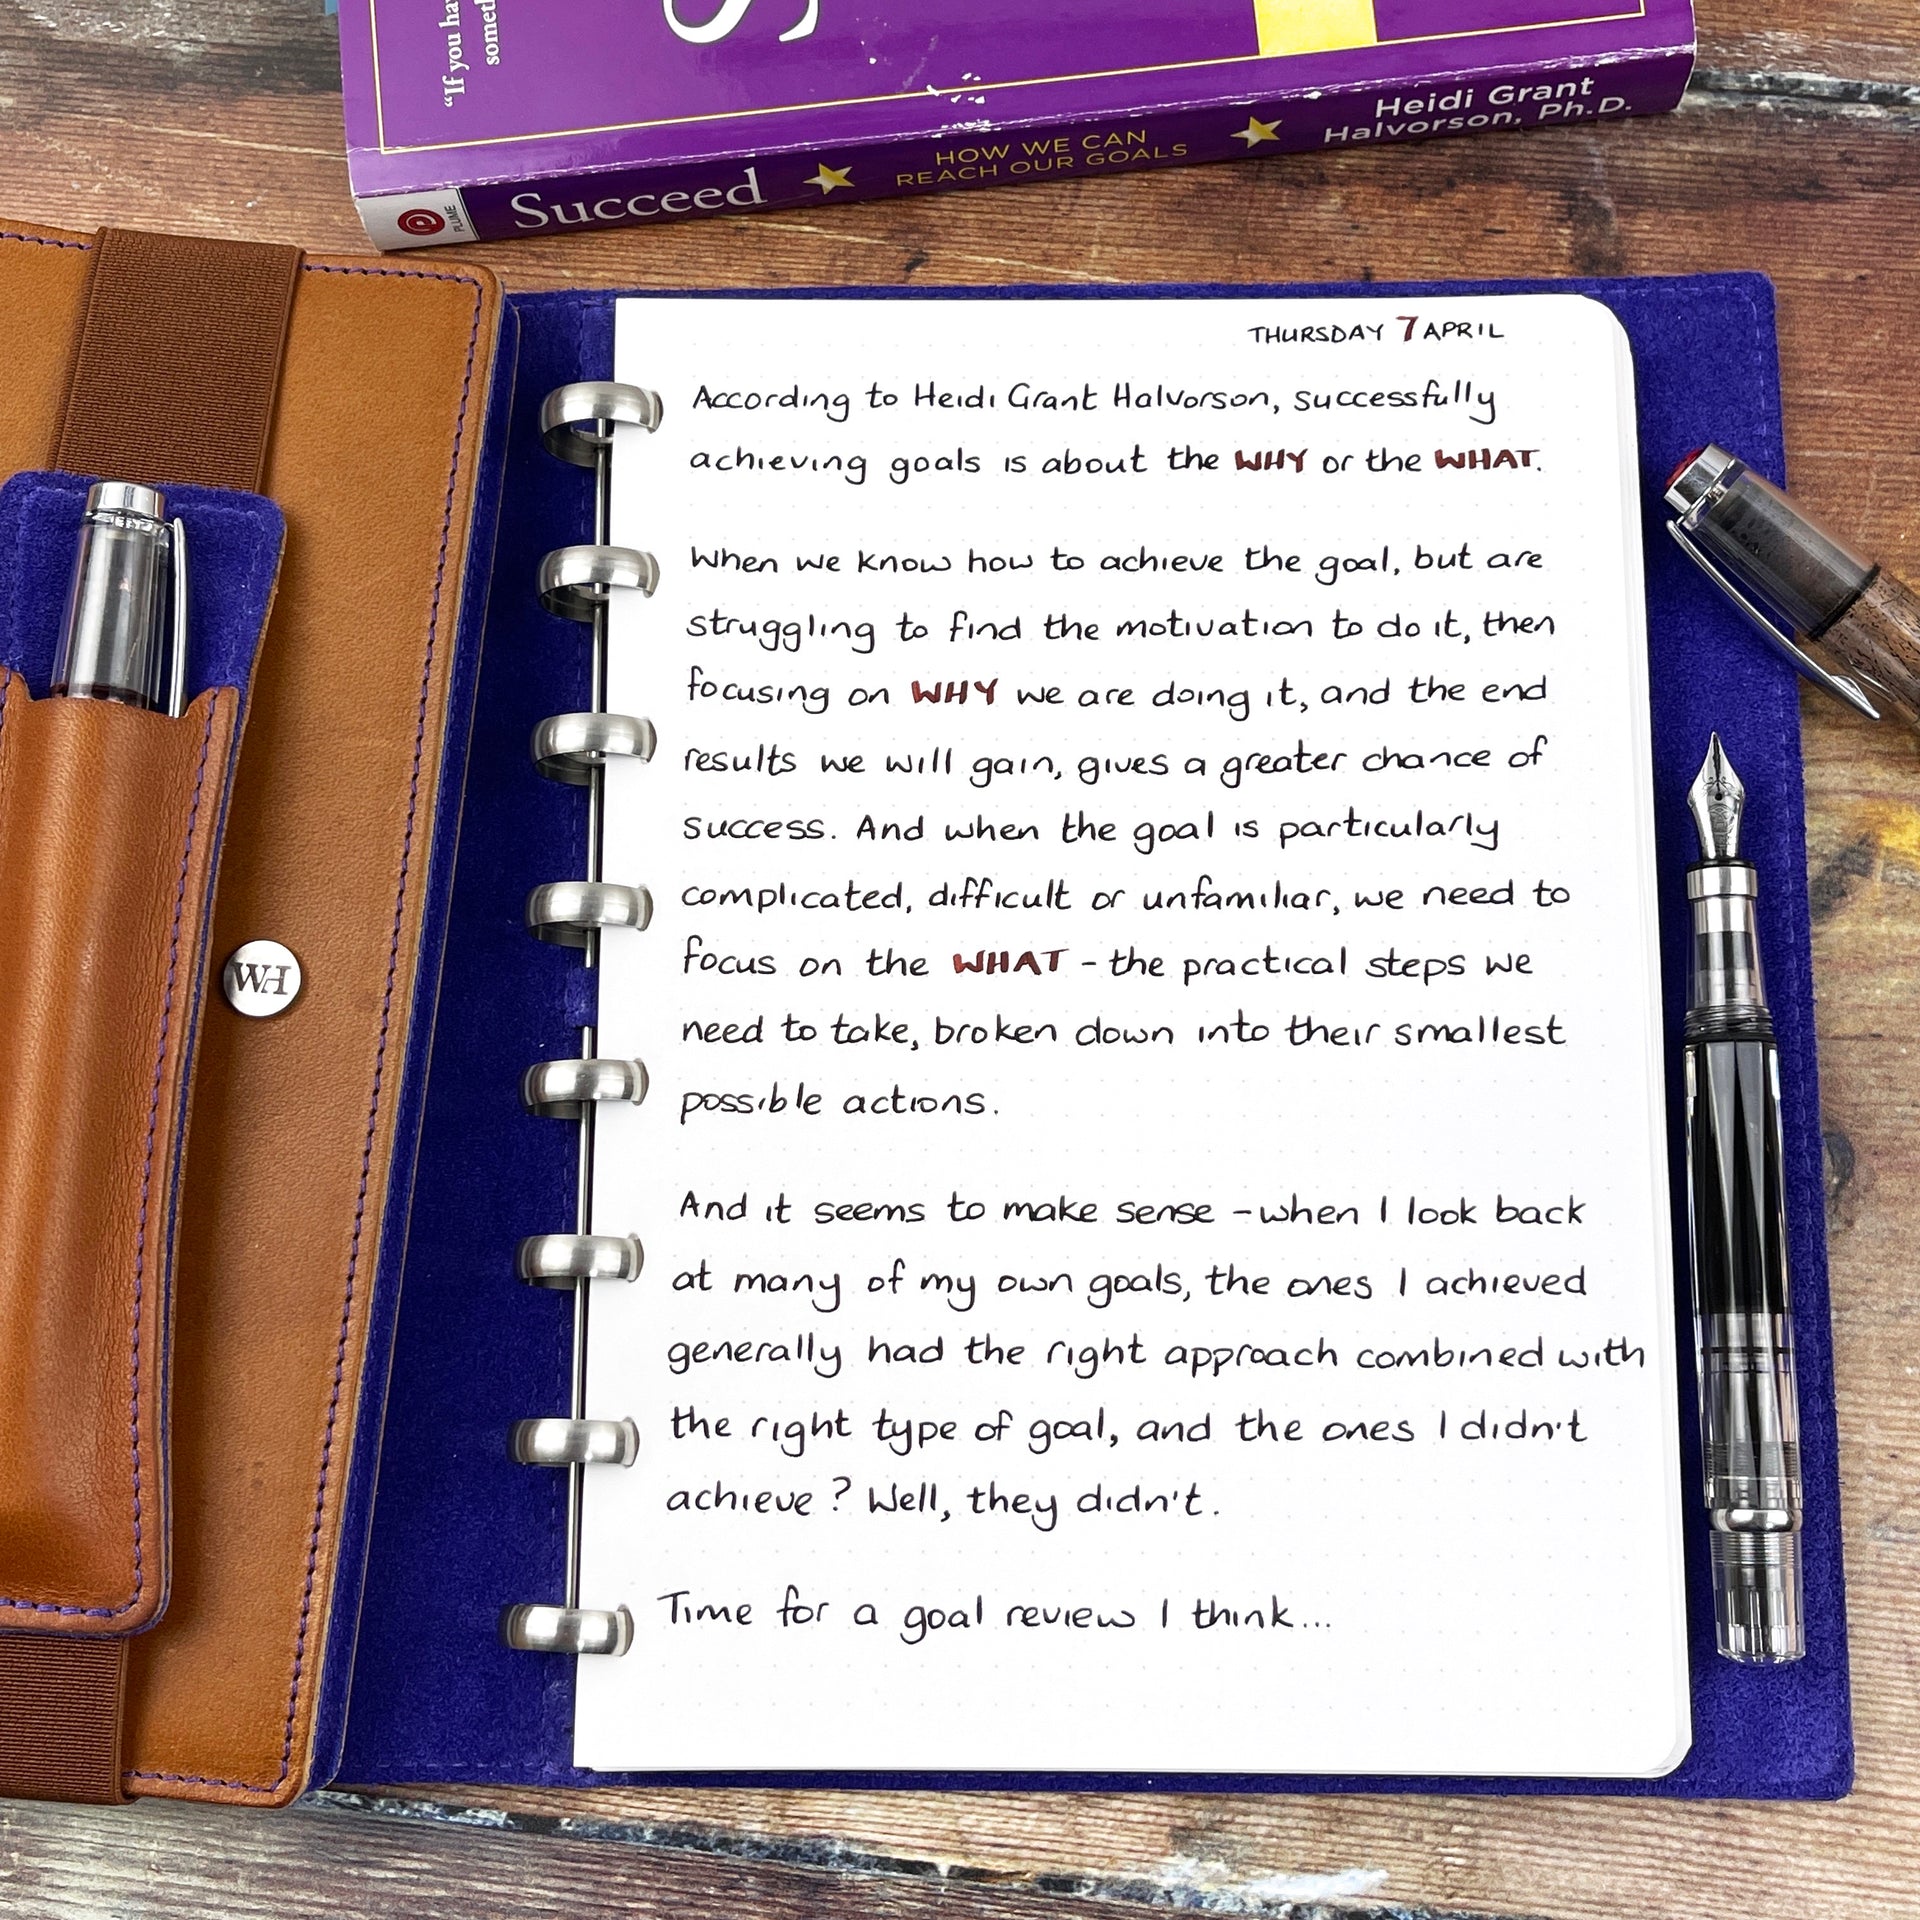 "If you ha
somet
Succeed
HOW WE CAN
REACH OUR GOALS
Heidi Grant
Halvorson, Ph.D.
PLUME
THURSDAY 7 APRIL
According to Heidi Grant Halvorson, successfully
achieving goals is about the WHY or the WHAT.
When we know how to achieve the goal, but are
struggling to find the motivation to do it, then
focusing on WHY we are doing it, and the end
results we will gain, gives a greater chance of
success. And when the goal is particularly
complicated, difficult or unfamiliar, we need to
focus on the WHAT - the practical steps we
need to take, broken down into their smallest
possible actions.
And it seems to make sense - when I look back
at many of my own goals, the ones I achieved
generally had the right approach combined with
the right type of goal, and the ones I didn't
achieve? Well, they didn't.
Time for a goal review I think...
WH